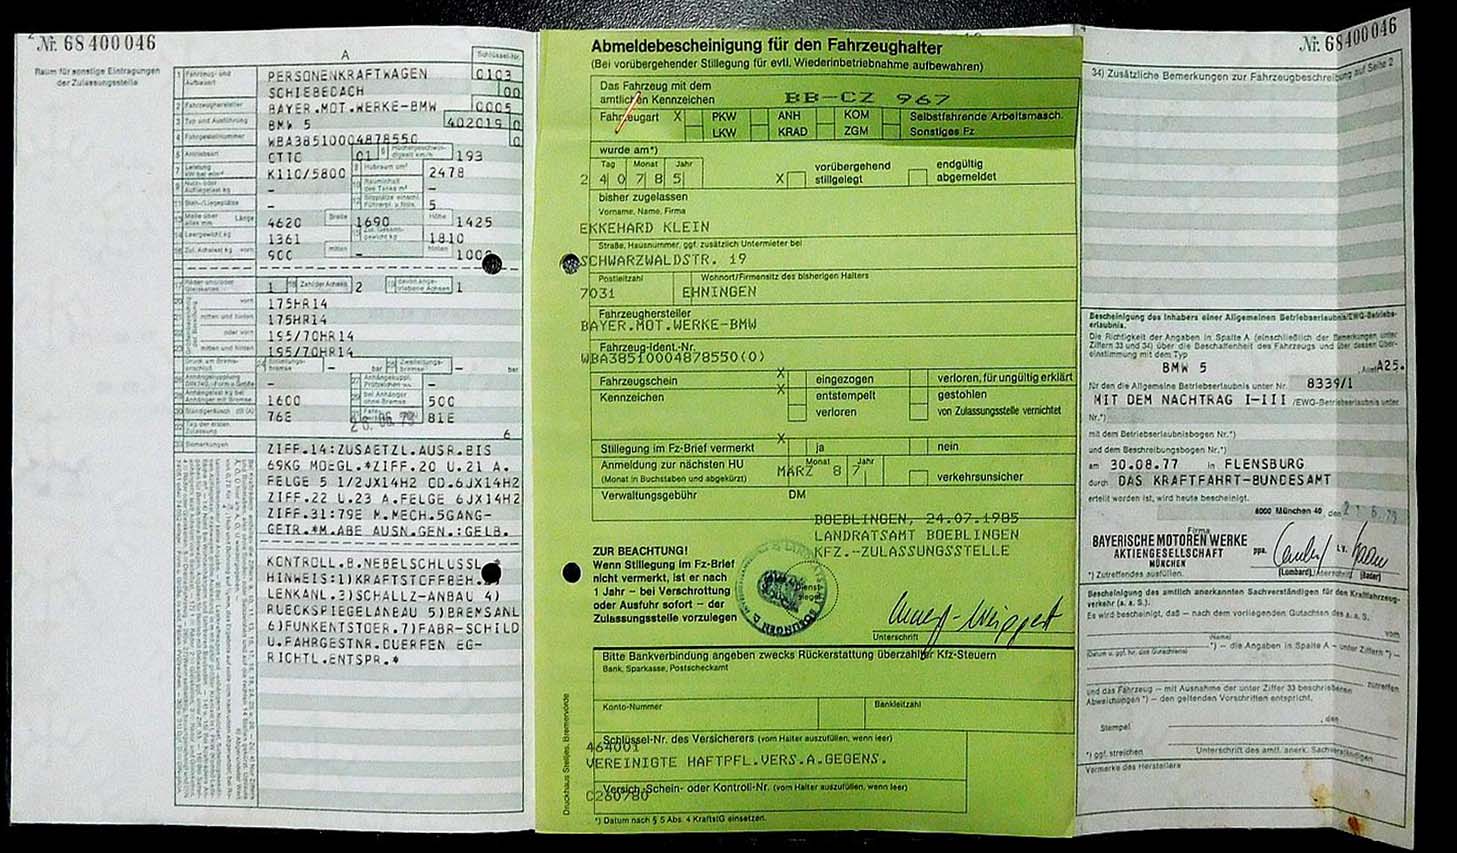 Nr. 68400046
Raum für sonstige Eintragungen
der Zulassungsstelle
A
Schlüssel-Nr.
1 Fahrzeug- und Aufbauart PERSONENKRAFTWAGEN 0103
SCHIEBEDACH 00
2 Fahrzeughersteller BAYER.MOT.WERKE-BMW 0005
3 Typ und Ausführung BMW 5 402019 0
4 Fahrgestellnummer WBA38510004878550 0
5 Antriebsart OTTO 01 6 Höchstgeschwindigkeit km/h 193
7 Leistung K110/5800 8 Hubraum cm³ 2478
-
- 5
13 Maße über alles mm Länge 4620 Breite 1690 Höhe 1425
14 Leergewicht kg 1361 15 Zul. Gesamtgewicht kg 1810
16 Zul. Achslast kg vorn 900 mitten - hinten 1000
1 18 Zahl der Achsen 2 19 davon angetriebene Achsen 1
vorn 175HR14
mitten und hinten 175HR14
oder vorn 195/70HR14
mitten und hinten 195/70HR14
- bar - bar
- -
1600 500
76E 81E
28.06.79
6
33 Bemerkungen
ZIFF.14:ZUSAETZL.AUSR.BIS
69KG MOEGL.*ZIFF.20 U.21 A.
FELGE 5 1/2JX14H2 OD.6JX14H2
ZIFF.22 U.23 A.FELGE 6JX14H2
ZIFF.31:79E M.MECH.5GANG-
GETR.*M.ABE AUSN.GEN.:GELB.
KONTROLL.B.NEBELSCHLUSSL.
HINWEIS:1)KRAFTSTOFFBEH.
LENKANL.3)SCHALLZ-ANBAU 4)
RUECKSPIEGELANBAU 5)BREMSANL
6)FUNKENTSTOER.7)FABR-SCHILD
U.FAHRGESTNR.DUERFEN EG-
RICHTL.ENTSPR.*
Abmeldebescheinigung für den Fahrzeughalter
(Bei vorübergehender Stillegung für evtl. Wiederinbetriebnahme aufbewahren)
Das Fahrzeug mit dem
amtlichen Kennzeichen BB-CZ 967
Fahrzeugart X PKW ANH KOM Selbstfahrende Arbeitsmasch.
LKW KRAD ZGM Sonstiges Fz
wurde am*)
Tag Monat Jahr
240785 X vorübergehend stillgelegt endgültig abgemeldet
bisher zugelassen
Vorname, Name, Firma
EKKEHARD KLEIN
Straße, Hausnummer, ggf. zusätzlich Untermieter bei
SCHWARZWALDSTR. 19
Postleitzahl Wohnort/Firmensitz des bisherigen Halters
7031 EHNINGEN
Fahrzeughersteller
BAYER.MOT.WERKE-BMW
Fahrzeug-Ident.-Nr.
WBA38510004878550(0)
Fahrzeugschein X eingezogen verloren, für ungültig erklärt
Kennzeichen X entstempelt gestohlen
verloren von Zulassungsstelle vernichtet
Stillegung im Fz-Brief vermerkt X ja nein
Anmeldung zur nächsten HU Monat Jahr
(Monat in Buchstaben und abgekürzt) MÄRZ 87 verkehrsunsicher
Verwaltungsgebühr DM
BOEBLINGEN, 24.07.1985
LANDRATSAMT BOEBLINGEN
KFZ.-ZULASSUNGSSTELLE
ZUR BEACHTUNG!
Wenn Stillegung im Fz-Brief
nicht vermerkt, ist er nach
1 Jahr – bei Verschrottung
oder Ausfuhr sofort – der
Zulassungsstelle vorzulegen
Dienstsiegel
Unterschrift
Bitte Bankverbindung angeben zwecks Rückerstattung überzahlter Kfz-Steuern
Bank, Sparkasse, Postscheckamt
Konto-Nummer Bankleitzahl
Schlüssel-Nr. des Versicherers (vom Halter auszufüllen, wenn leer)
464001
VEREINIGTE HAFTPFL.VERS.A.GEGENS.
Versich.-Schein- oder Kontroll-Nr. (vom Halter auszufüllen, wenn leer)
C260780
*) Datum nach § 5 Abs. 4 KraftStG einsetzen.
Druckhaus Stelljes, Bremervörde
Nr. 68400046
34) Zusätzliche Bemerkungen zur Fahrzeugbeschreibung auf Seite 2
Bescheinigung des Inhabers einer Allgemeinen Betriebserlaubnis/EWG-Betriebserlaubnis.
Die Richtigkeit der Angaben in Spalte A (einschließlich der Bemerkungen unter
Ziffern 33 und 34) über die Beschaffenheit des Fahrzeugs und über dessen Übereinstimmung mit dem Typ
BMW 5 A25.
für den die Allgemeine Betriebserlaubnis unter Nr. 8339/1
MIT DEM NACHTRAG I-III /EWG-Betriebserlaubnis unter
Nr.*)
mit dem Betriebserlaubnisbogen Nr.*)
und dem Beschreibungsbogen Nr.*)
am 30.08.77 in FLENSBURG
durch DAS KRAFTFAHRT-BUNDESAMT
erteilt worden ist, wird heute bescheinigt.
8000 München 40 den 21.6.79
Firma
BAYERISCHE MOTOREN WERKE
AKTIENGESELLSCHAFT
MÜNCHEN
ppa. i.V.
(Lombard) Unterschrift (Bader)
*) Zutreffendes ausfüllen.
Bescheinigung des amtlich anerkannten Sachverständigen für den Kraftfahrzeugverkehr (a. a. S.).
Es wird bescheinigt, daß – nach dem vorliegenden Gutachten des a. a. S.
(Name) vom
(Datum u. ggf. Nr. des Gutachtens) *) – die Angaben in Spalte A – unter Ziffern *) –
zutreffen
und das Fahrzeug – mit Ausnahme der unter Ziffer 33 beschriebenen
Abweichungen *) – den geltenden Vorschriften entspricht.
, den
Stempel
*) ggf. streichen Unterschrift des amtl. anerk. Sachverständigen
Vermerke des Herstellers